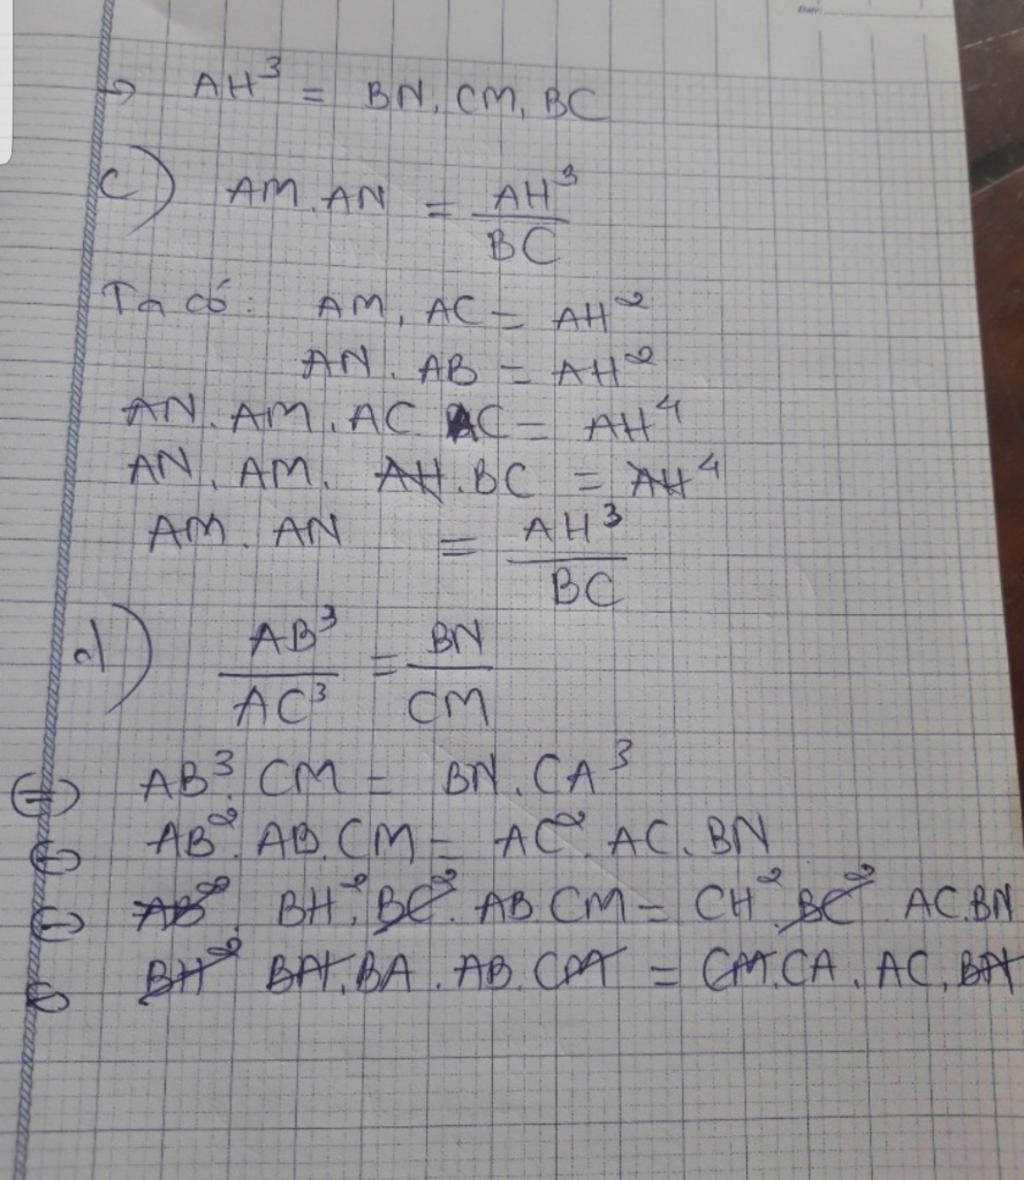 → AH³ = BN. CM. BC
c) AM. AN = AH³/BC
Ta có: AM. AC = AH²
AN. AB = AH²
AN. AM. AC AC = AH⁴
AN. AM. AH. BC = AH⁴
AM. AN = AH³/BC
d) AB³/AC³ = BN/CM
⇔ AB³. CM = BN. CA³
⇔ AB². AB. CM = AC². AC. BN
⇔ BH². BC². AB CM = CH². BC² AC. BN
⇔ BN. BA. AB. CM = CM. CA. AC. BN